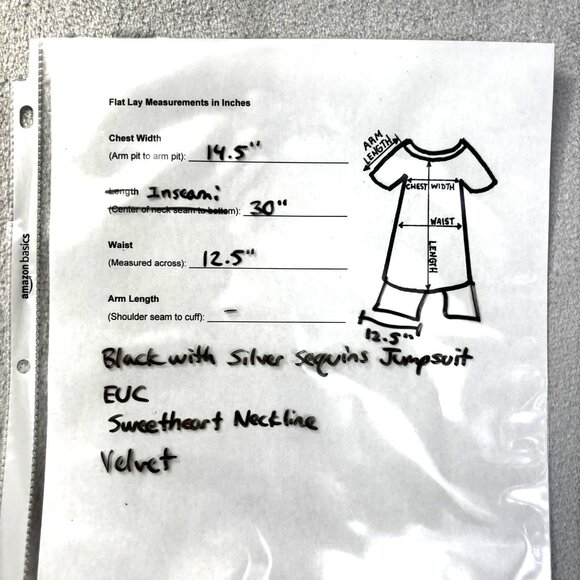 Flat Lay Measurements in Inches
Chest Width
(Arm pit to arm pit): 14.5"
Length Inseam:
(Center of neck seam to bottom): 30"
Waist
(Measured across): 12.5"
Arm Length
(Shoulder seam to cuff): –
ARM
LENGTH
CHEST WIDTH
WAIST
LENGTH
12.5"
Black with Silver Sequins Jumpsuit
EUC
Sweetheart Neckline
Velvet
amazon basics